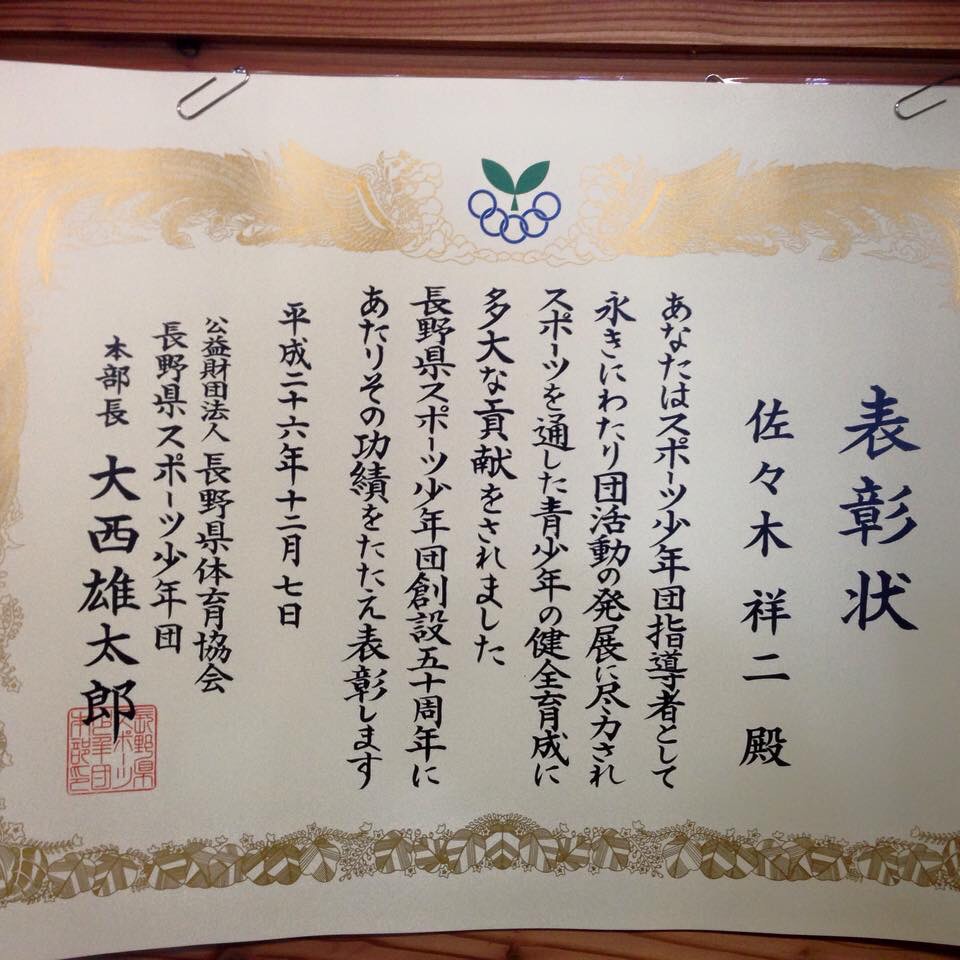 表彰状
佐々木祥二殿
あなたはスポーツ少年団指導者として
永きにわたり団活動の発展に尽力され
スポーツを通した青少年の健全育成に
多大な貢献をされました
長野県スポーツ少年団創設五十周年に
あたりその功績をたたえ表彰します
平成二十六年十二月七日
公益財団法人 長野県体育協会
長野県スポーツ少年団
本部長 大西雄太郎
長野県
スポーツ
少年団
本部印